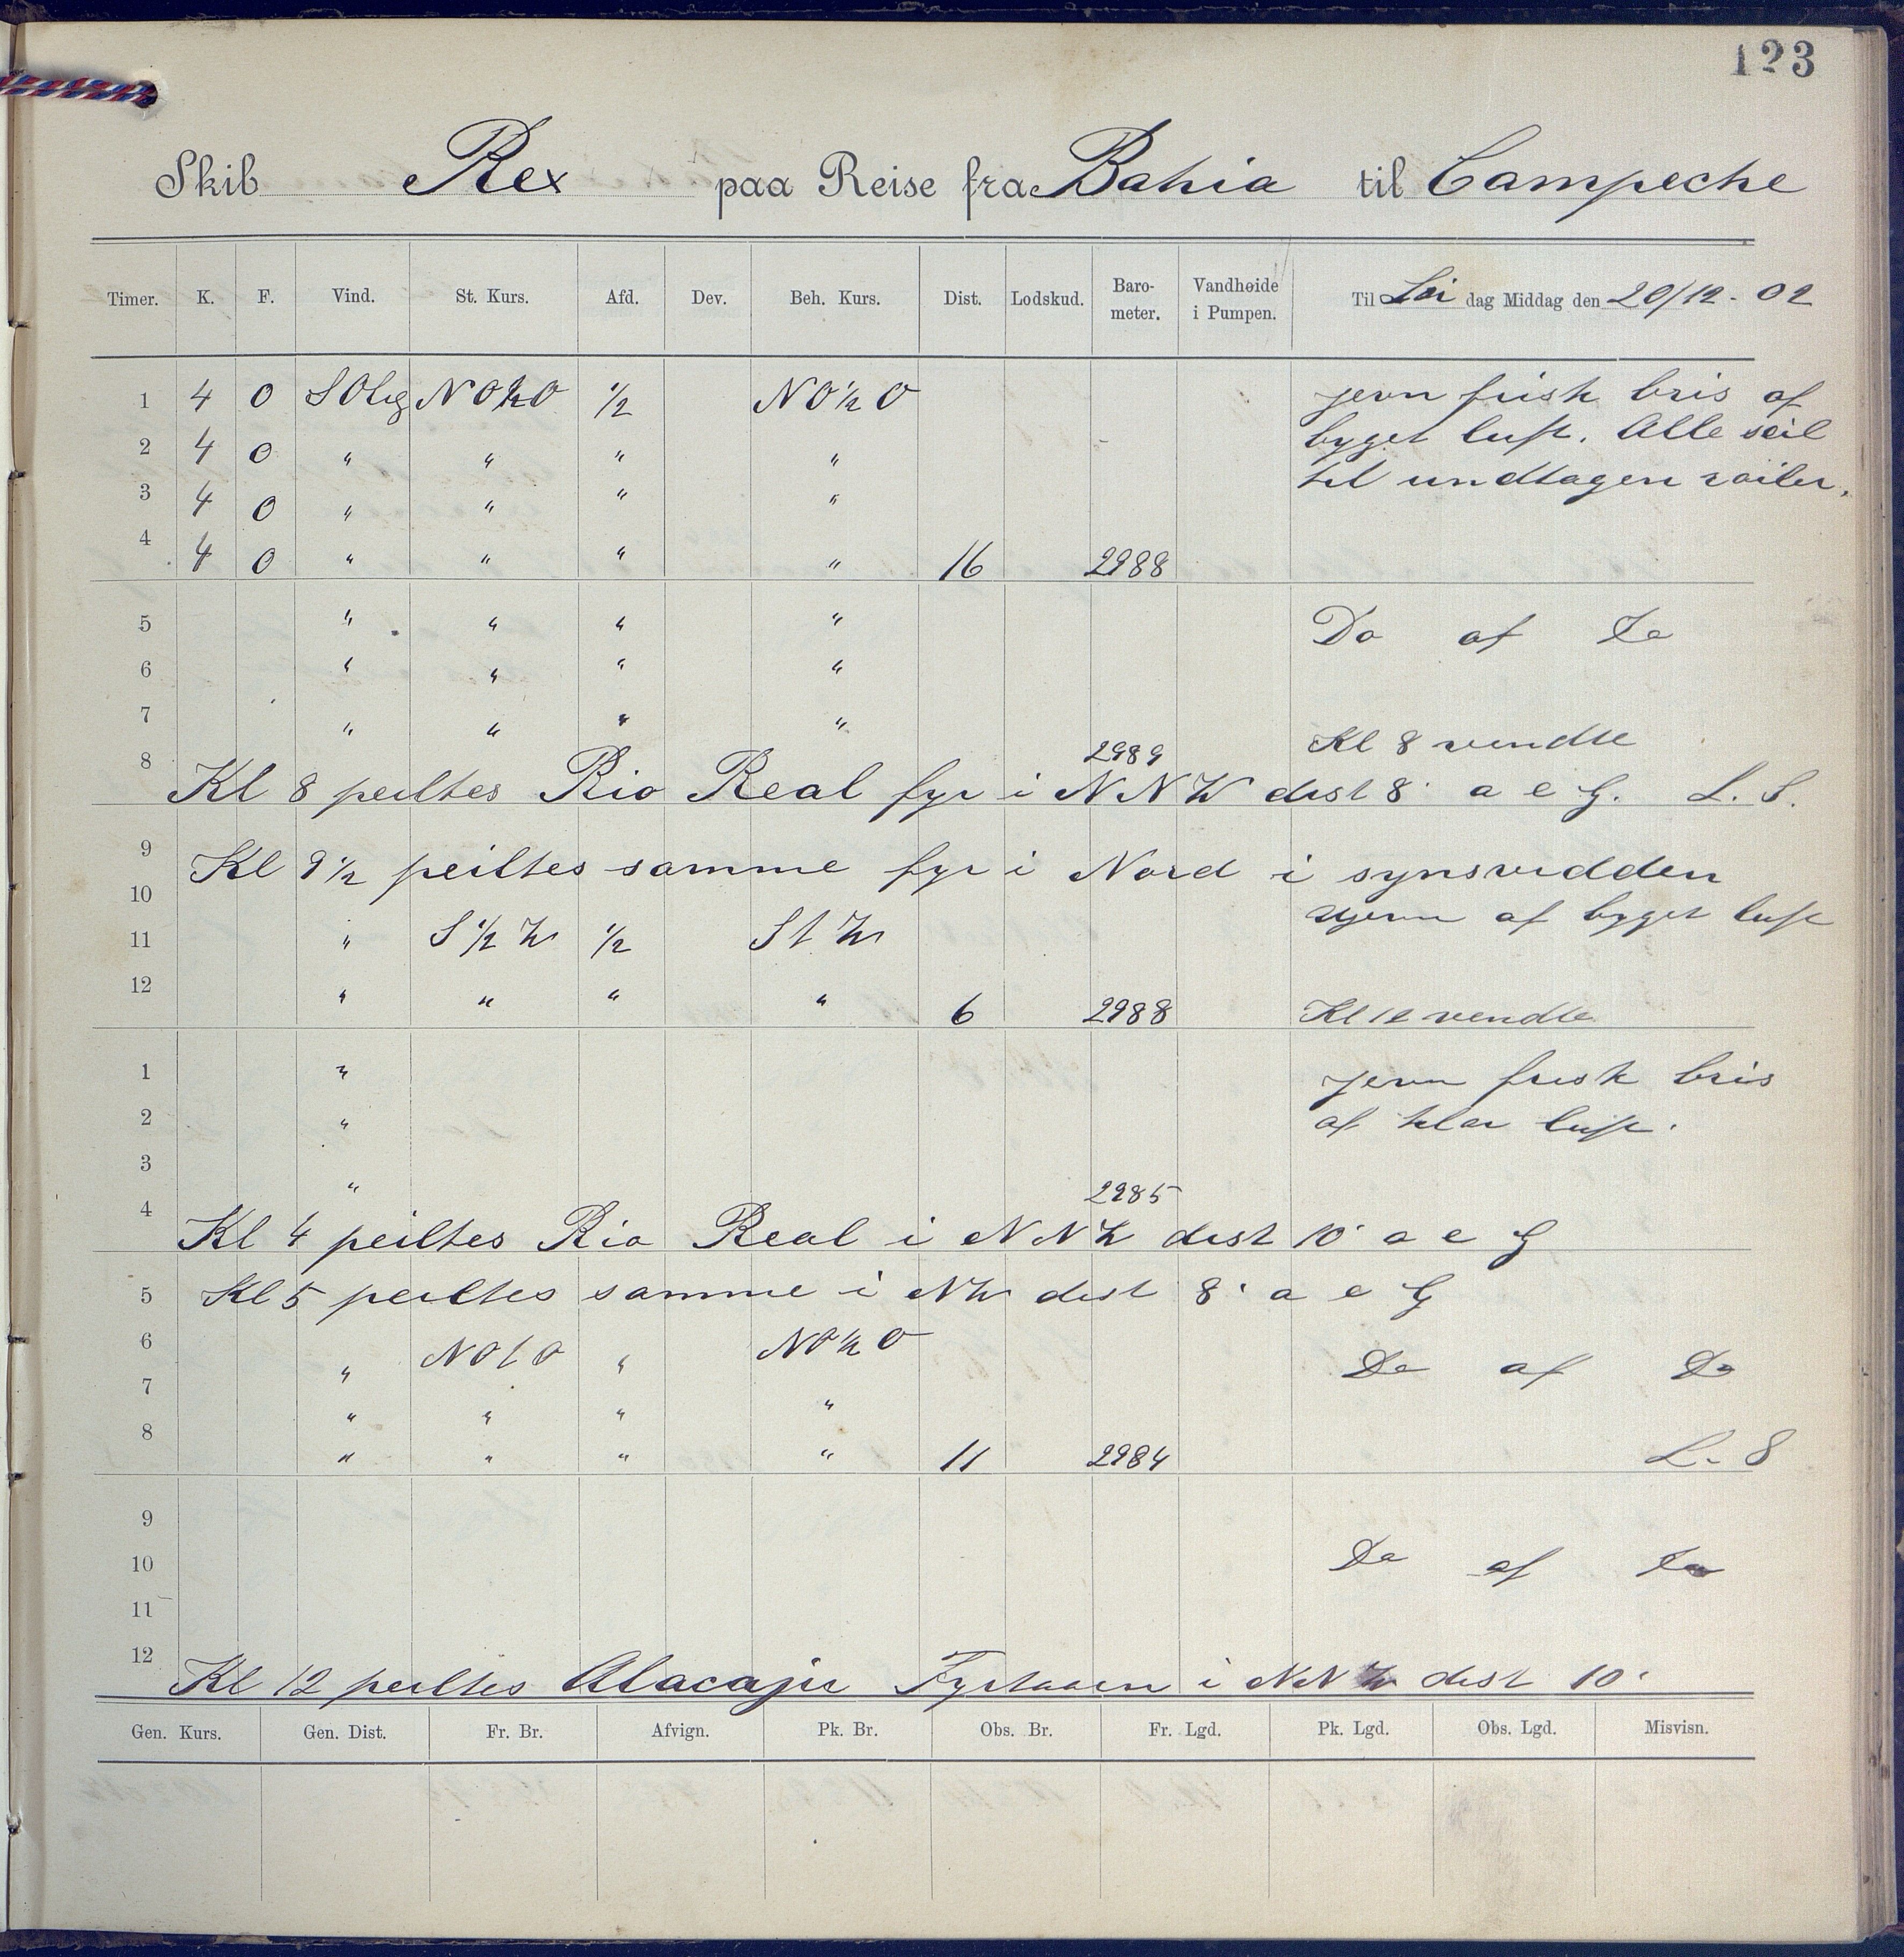 123
Skib Rex paa Reise fra Bahia til Campeche
Timer. K. F. Vind. St. Kurs. Afd. Dev. Beh. Kurs. Dist. Lodskud. Barometer. Vandhøide i Pumpen. Til Lør dag Middag den 20/12-02
1 4 0 SOlig NO½O ½ NO½O jevn frisk bris af
2 4 0 " " " " byget luft. Alle seil
3 4 0 " " " " til undtagen roiler.
4 4 0 " " " " 16 2988
5 " " " " Do af Do
6 " " " "
7 " " " " 2989 Kl 8 vendte
8 Kl 8 peiltes Rio Real fyr i NNW dist 8' a e G. L. S.
9 Kl 9½ peiltes samme fyr i Nord i synsvidden
10 Ujevn af byget luft
11 " S½W ½ StW
12 " " " " 6 2988 Kl 12 vendte
1 " jevn frisk bris
2 " af klar luft.
3 " 2985
4 Kl 4 peiltes Rio Real i NNW dist 10' a e G
5 Kl 5 peiltes samme i NW dist 8' a e G
6 " NOtO " NO½O Do af Do
7 " " " "
8 " " " " 11 2984 L. S
9
10 Do af Do
11
12 Kl 12 peiltes Alacaju Fyrtaarn i NNW dist 10'
Gen. Kurs. Gen. Dist. Fr. Br. Afvign. Pk. Br. Obs. Br. Fr. Lgd. Pk. Lgd. Obs. Lgd. Misvisn.